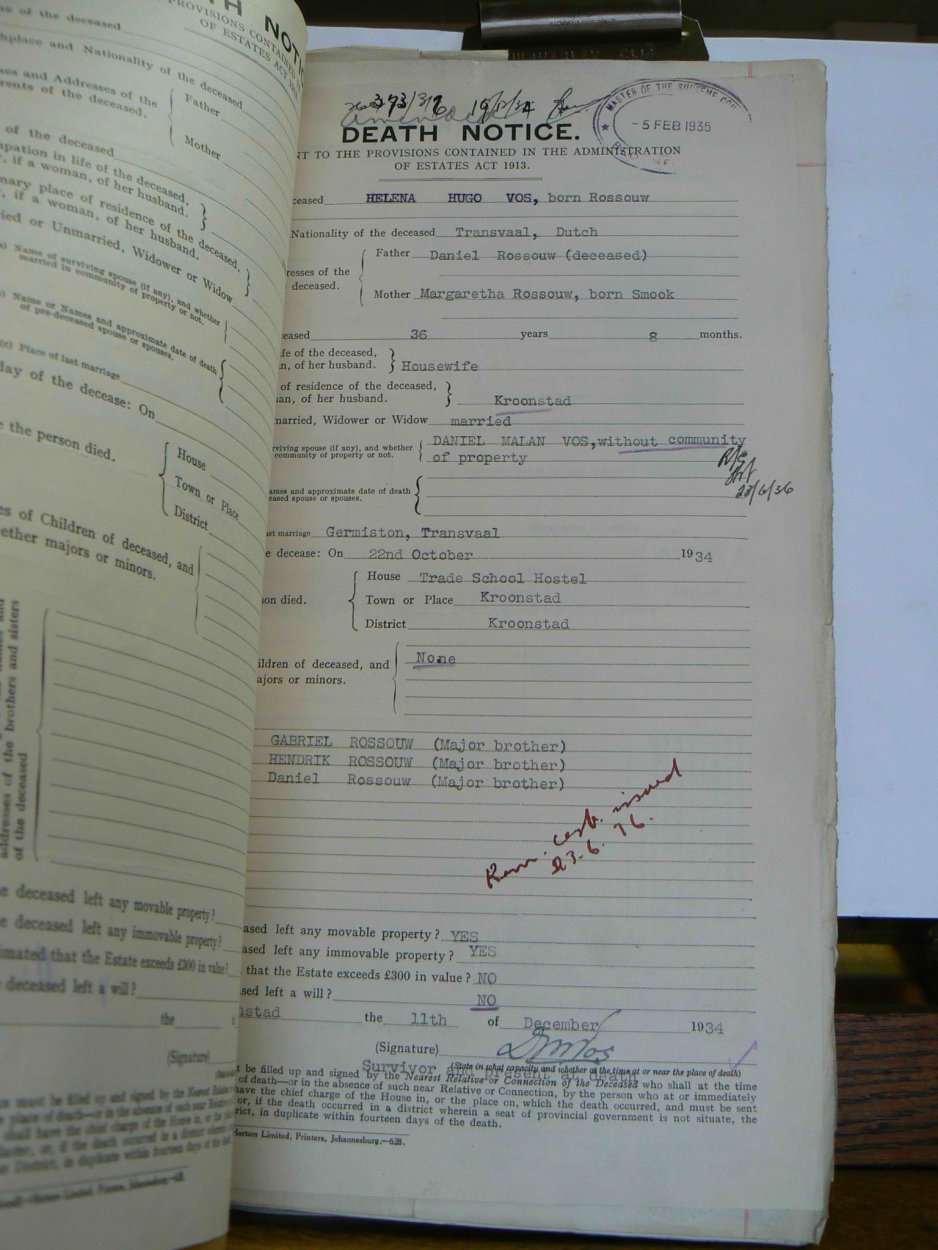 TH NOTI
PROVISIONS CONTAINED
OF ESTATES ACT 191
of the deceased
hplace and Nationality of the deceased
mes and Addresses of the
rents of the deceased.
Father
Mother
of the deceased
pation in life of the deceased,
, if a woman, of her husband.
nary place of residence of the deceased,
, if a woman, of her husband.
ied or Unmarried, Widower or Widow
Name of surviving spouse (if any), and whether
married in community of property or not.
Name or Names and approximate date of death
of pre-deceased spouse or spouses.
(c) Place of last marriage
day of the decease: On
e the person died.
House
Town or Place
District
es of Children of deceased, and
ether majors or minors.
addresses of the brothers and sisters
of the deceased
e deceased left any movable property?
e deceased left any immovable property?
imated that the Estate exceeds £300 in value?
deceased left a will?
the
(Signature)
373/36
MASTER OF THE SUPREME COU
- 5 FEB 1936
DEATH NOTICE.
NT TO THE PROVISIONS CONTAINED IN THE ADMINISTRATION
OF ESTATES ACT 1913.
ceased HELENA HUGO VOS, born Rossouw
Nationality of the deceased Transvaal, Dutch
resses of the
deceased.
Father Daniel Rossouw (deceased)
Mother Margaretha Rossouw, born Smook
eased 36 years 8 months.
ife of the deceased,
n, of her husband. Housewife
of residence of the deceased,
an, of her husband. Kroonstad
narried, Widower or Widow married
rviving spouse (if any), and whether
community of property or not.
DANIEL MALAN VOS, without community
of property
23/6/36
ames and approximate date of death
eased spouse or spouses.
ast marriage Germiston, Transvaal
e decease: On 22nd October 1934
son died.
House Trade School Hostel
Town or Place Kroonstad
District Kroonstad
ildren of deceased, and
ajors or minors.
None
GABRIEL ROSSOUW (Major brother)
HENDRIK ROSSOUW (Major brother)
Daniel Rossouw (Major brother)
cert. issued
23.6.36.
ased left any movable property? YES
ased left any immovable property? YES
that the Estate exceeds £300 in value? NO
sed left a will? NO
nstad the 11th of December 1934
(Signature) DMVos
Survivor and present at death
(State in what capacity and whether at the time at or near the place of death)
t be filled up and signed by the Nearest Relative or Connection of the Deceased who shall at the time
of death—or in the absence of such near Relative or Connection, by the person who at or immediately
have the chief charge of the House in, or the place on, which the death occurred, and must be sent
or, if the death occurred in a district wherein a seat of provincial government is not situate, the
rict, in duplicate within fourteen days of the death.
Hortors Limited, Printers, Johannesburg.—628.